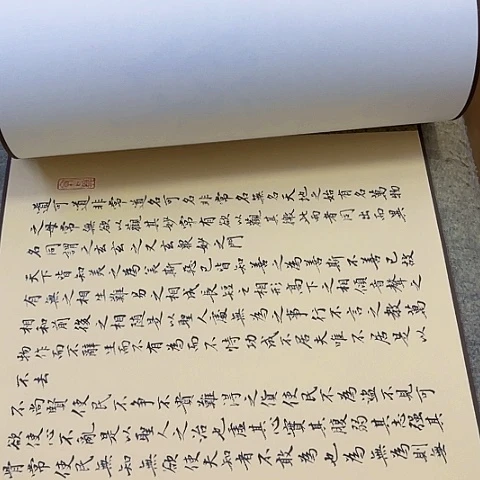 道可道非常道名可名非常名無名天地之始有名萬物
之母常無欲以觀其妙常有欲以觀其徼此兩者同出而異
名同謂之玄玄之又玄衆妙之門
天下皆知美之為美斯惡已皆知善之為善斯不善已故
有無之相生難易之相成長短之相形高下之相傾音聲之
相和前後之相隨是以聖人處無為之事行不言之教萬
物作而不辭生而不有為而不恃功成不居夫唯不居是以
不去
不尚賢使民不爭不貴難得之貨使民不為盜不見可
欲使心不亂是以聖人之治也虛其心實其腹弱其志強其
骨常使民無知無欲使夫知者不敢為也為無為則無